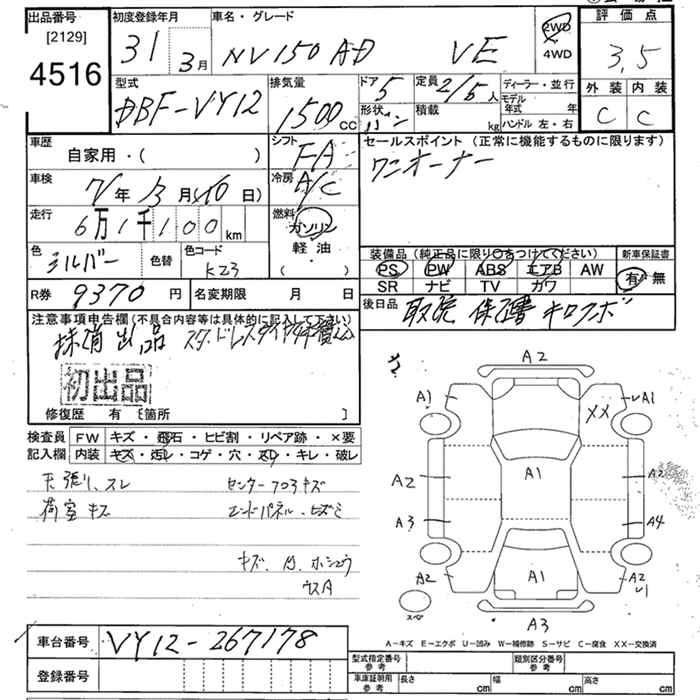 出品番号
[2129]
4516
初度登録年月
31 3月
車名・グレード
NV150 AD VE
2WD
4WD
評価点
3,5
型式
DBF-VY12
排気量
1500cc
ドア
5
形状
バン
定員
2/5人
積載
kg
ディーラー・並行
モデル年式 年
ハンドル 左・右
外装 内装
C C
車歴
自家用・( )
シフト
FA
セールスポイント(正常に機能するものに限ります)
ワンオーナー
車検
年 月 日)
冷房
A/C
走行
6万1千100km
燃料
ガソリン
軽・油
( )
色
シルバー
色替
色コード
K23
装備品(純正品に限り○をつけてください)
PS PW ABS エアB AW
SR ナビ TV カワ
新車保証書
有・無
R券
9370円
名変期限 月 日
後日品
取説 保証書 キロクボ
注意事項申告欄(不具合内容等は具体的に記入して下さい)
抹消出品 スタッドレスタイヤ
初出品
修復歴 有〔箇所 〕
検査員記入欄
FW キズ・飛石・ヒビ割・リペア跡・×要
内装 キズ・汚レ・コゲ・穴・スレ・キレ・破レ
天張り、スレ センターフロアキズ
荷室キズ エンドパネル、ヒズミ
キズ、凹、ホシュウ
ウスA
A2
A1 A1
XX
A1
A2 A2
A3 A4
A1
A2 A2
U1
スペア
A3
A-キズ E-エクボ U-凹み W-補修跡 S-サビ C-腐食 XX-交換済
車台番号
VY12-267178
登録番号
型式指定番号参考
類別区分番号参考
車庫証明用参考
長さ cm 幅 cm 高さ cm